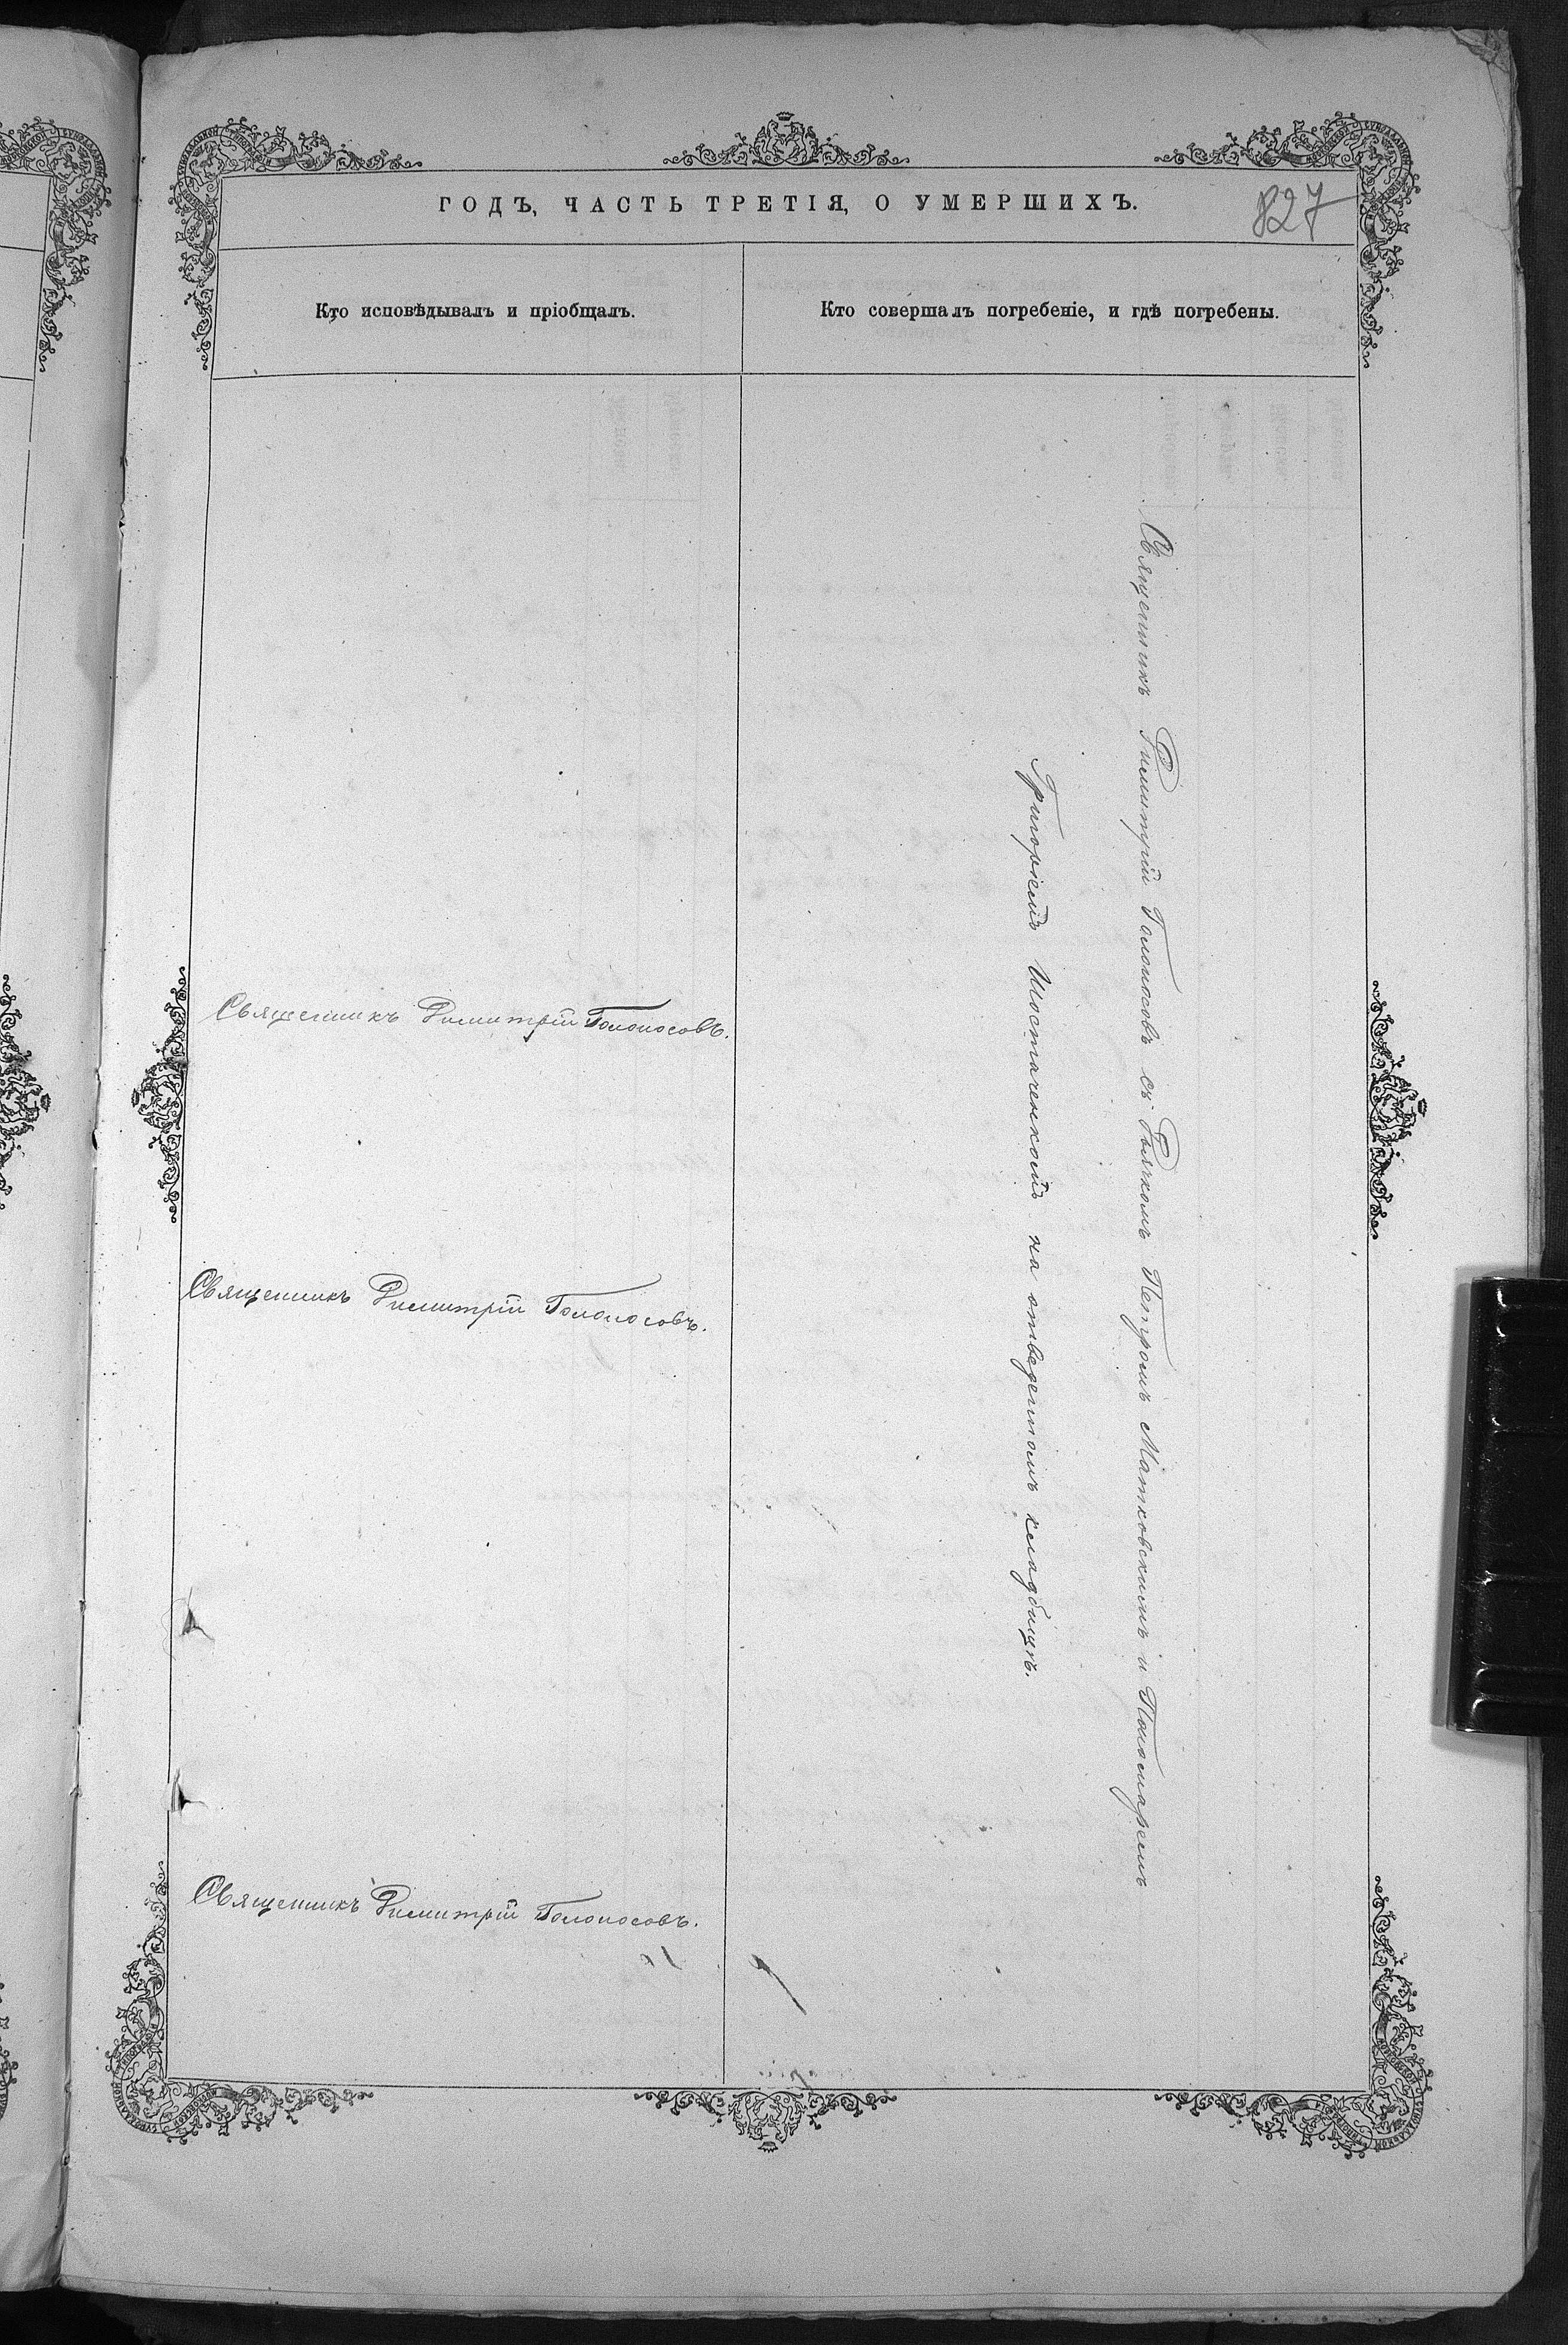 ГОДЪ, ЧАСТЬ ТРЕТІЯ, О УМЕРШИХЪ.
827
Кто исповѣдывалъ и пріобщалъ.
Кто совершалъ погребеніе, и гдѣ погребены.
Священникъ Димитрій Голоносовъ.
Священникъ Димитрій Голоносовъ.
Священникъ Димитрій Голоносовъ.
Священникъ Димитрій Голоносовъ съ Дьякомъ Петромъ Матковскимъ и Пономаремъ
Григоріемъ Шостаченкомъ на отведенномъ кладбищѣ.